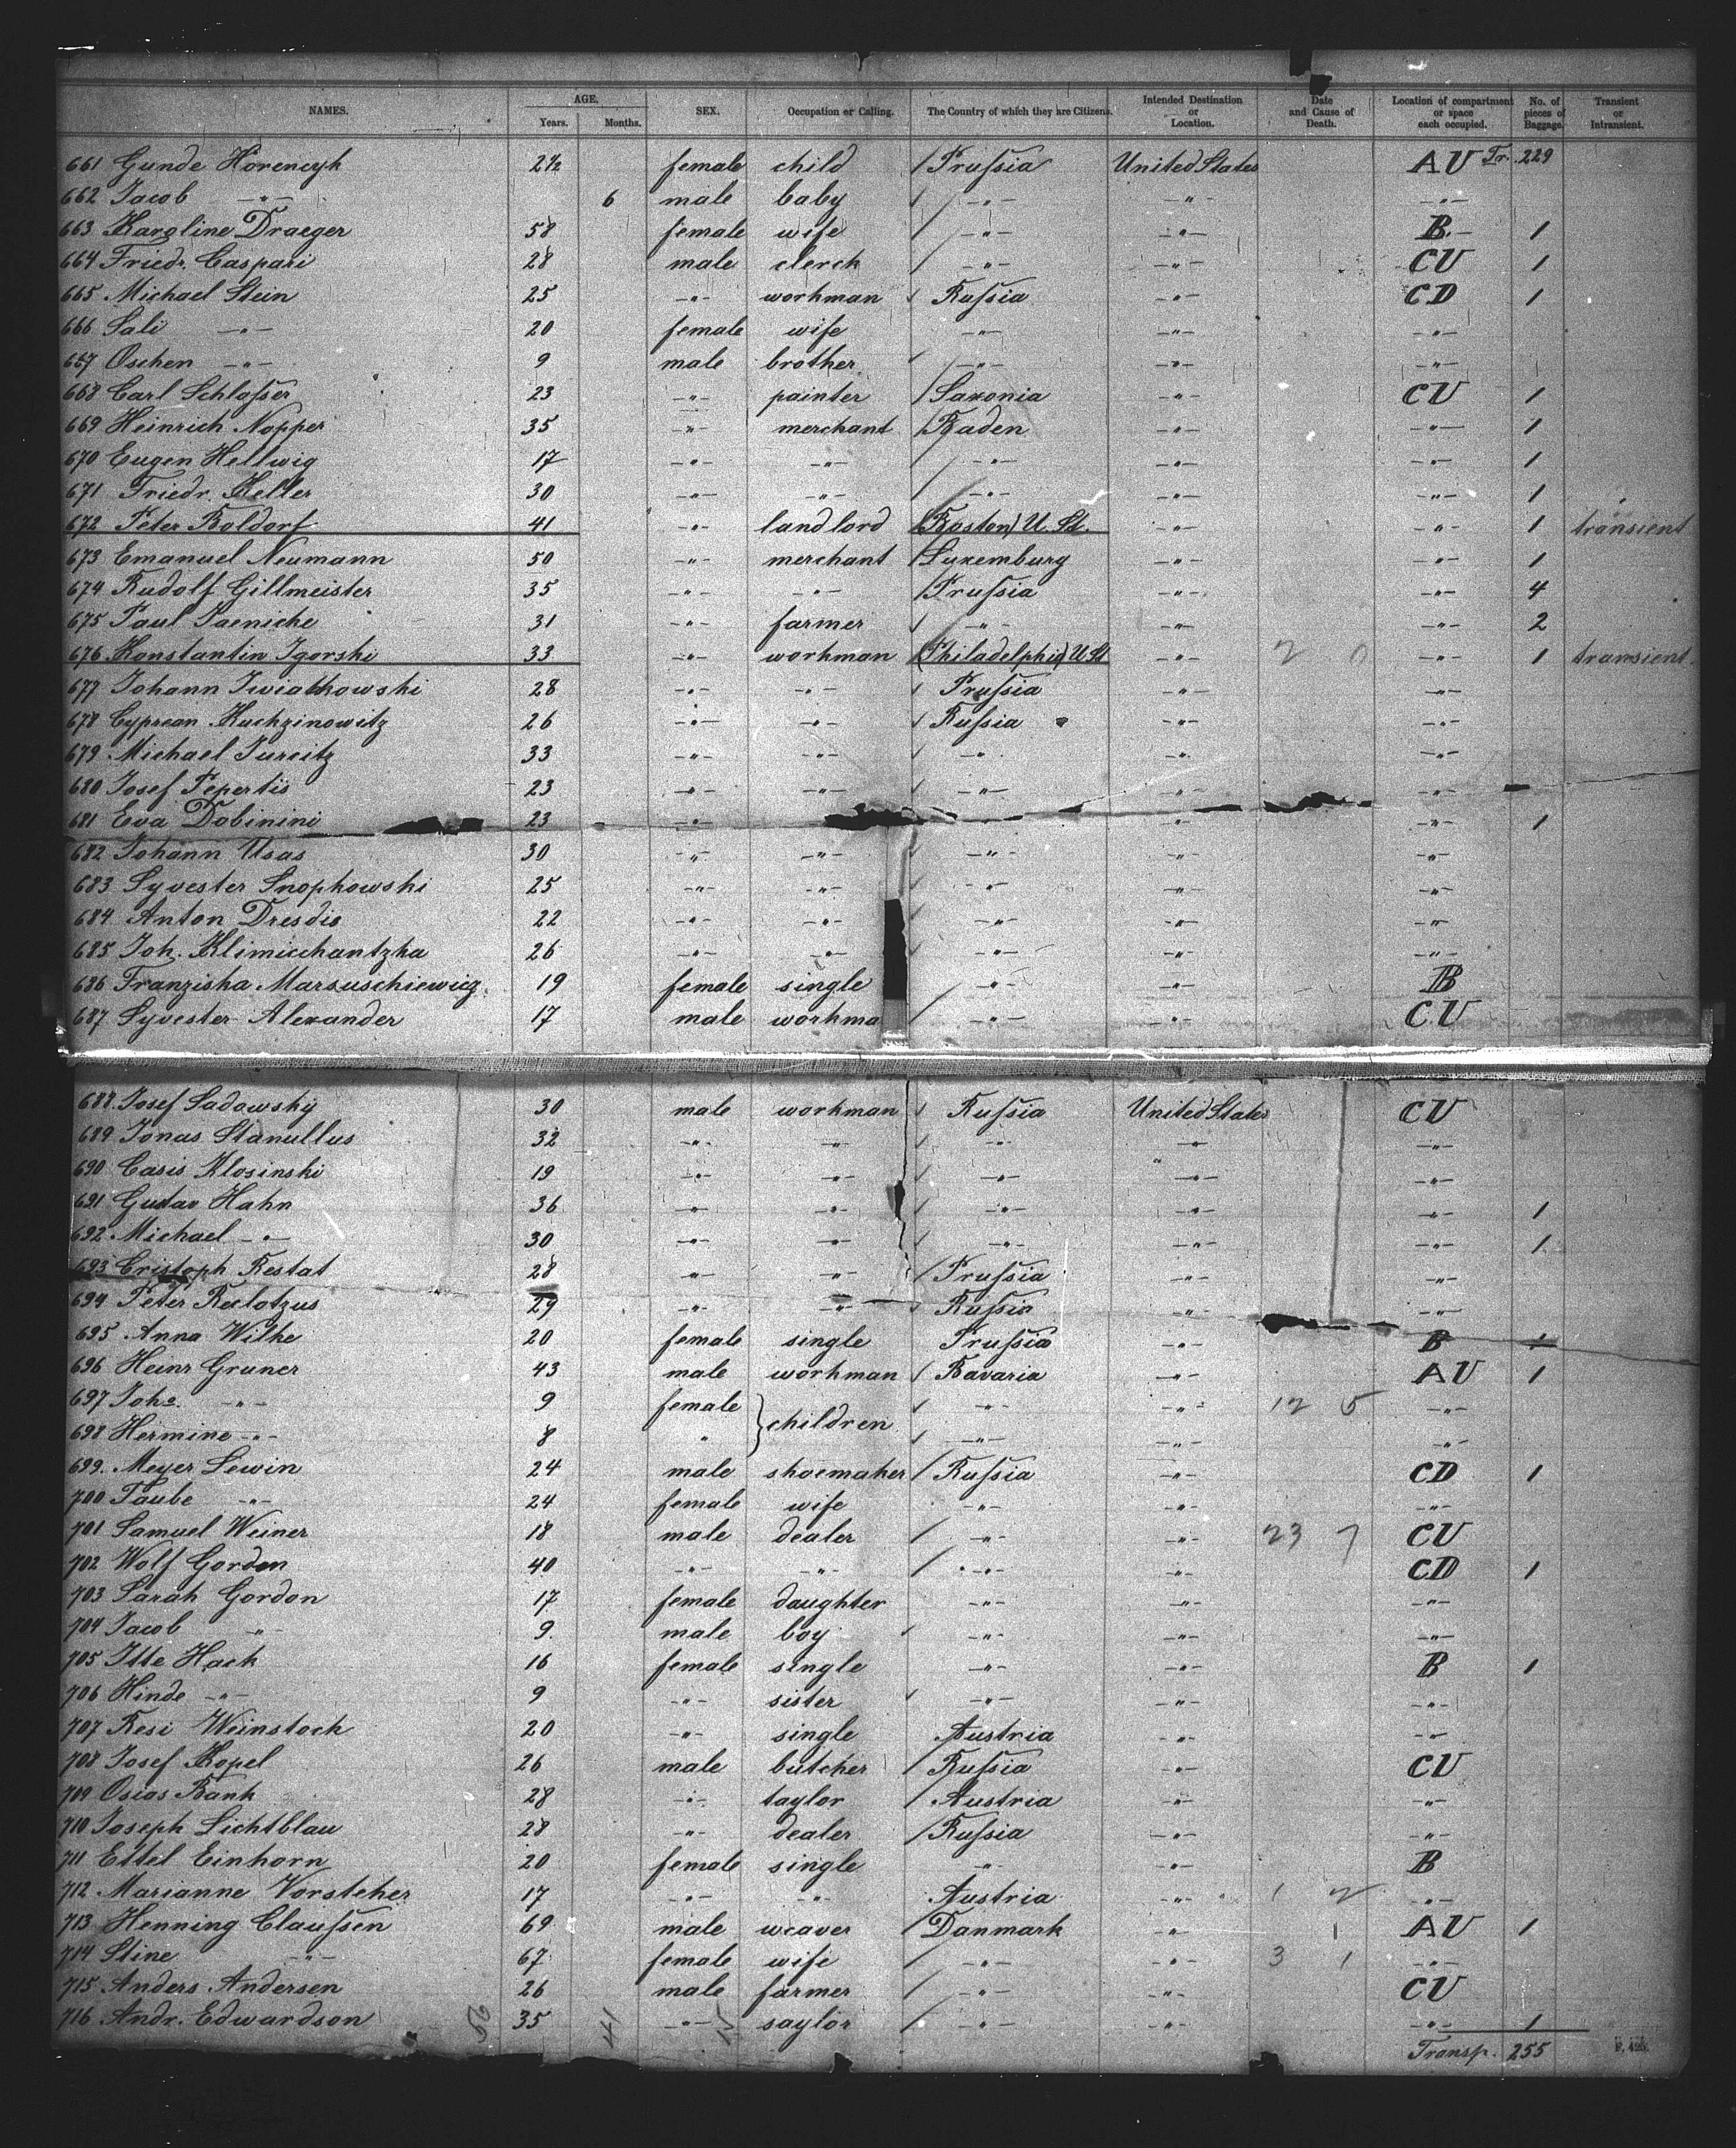 NAMES. AGE. Years. Months. SEX. Occupation or Calling. The Country of which they are Citizens. Intended Destination or Location. Date and Cause of Death. Location of compartment or space each occupied. No. of pieces of Baggage. Transient or Intransient.
661 Gunde Horencyk 2½ female child / Prussia United States AU Tr. 229
662 Jacob -"- 6 male baby -"- -"- -"-
663 Karoline Draeger 58 female wife / -"- -"- B. 1
664 Friedr. Caspari 28 male clerck / -"- -"- CU 1
665 Michael Stein 25 -"- workman Russia -"- CD 1
666 Sali -"- 20 female wife -"- -"- -"-
667 Oschen -"- 9 male brother -"- -"- -"-
668 Carl Schlosser 23 -"- painter / Saxonia -"- CU 1
669 Heinrich Nopper 35 -"- merchant / Baden -"- -"- 1
670 Eugen Hellwig 17 -"- -"- / -"- -"- -"- 1
671 Friedr. Keller 30 -"- -"- / -"- -"- -"- 1
672 Peter Boldorf 41 -"- landlord (Boston) U. St. -"- -"- 1 transient
673 Emanuel Neumann 50 -"- merchant / Luxemburg -"- -"- 1
674 Rudolf Gillmeister 35 -"- -"- / Prussia -"- -"- 4
675 Paul Jaenicke 31 -"- farmer -"- -"- -"- 2
676 Konstantin Igorski 33 -"- workman (Philadelphia) U St -"- 2 0 -"- 1 transient
677 Johann Iwiatkowski 28 -"- -"- Prussia -"- -"-
678 Cyprean Kuchzinowitz 26 -"- -"- Russia -"- -"-
679 Michael Jurcitz 33 -"- -"- -"- -"- -"-
680 Josef Pepertis 23 -"- -"- -"- -"- -"-
681 Eva Dobinini 23 -"- -"- -"- 1
682 Johann Usas 30 -"- -"- -"- -"- -"-
683 Syvester Snopkowski 25 -"- -"- -"- -"- -"-
684 Anton Dresdis 22 -"- -"- -"- -"- -"-
685 Joh. Klimicchantzka 26 -"- -"- -"- -"- -"-
686 Franziska Marsuschiewicz 19 female single -"- -"- B
687 Syvester Alexander 17 male workma / -"- -"- CU
688 Josef Sadowsky 30 male workman Russia United States CU
689 Jonas Stanullus 32 -"- -"- -"- -"- -"-
690 Casis Klosinski 19 -"- -"- -"- -"- -"-
691 Gustav Hahn 36 -"- -"- -"- -"- -"- 1
692 Michael -"- 30 -"- -"- -"- -"- -"- 1
693 Cristoph Restat 28 -"- -"- / Prussia -"- -"-
694 Peter Reclotzus 29 -"- -"- Russia -"- -"-
695 Anna Wilke 20 female single Prussia -"- B 1
696 Heinr Gruner 43 male workman / Bavaria -"- AU 1
697 Johe. -"- 9 female } children -"- -"- 12 5 -"-
698 Hermine -"- 8 " -"- -"- -"-
699. Meyer Lewin 24 male shoemaker / Russia -"- CD 1
700 Taube -"- 24 female wife -"- -"- -"-
701 Samuel Weiner 18 male dealer / -"- -"- 23 7 CU
702 Wolf Gordon 40 -"- -"- / -"- -"- CD 1
703 Sarah Gordon 17 female daughter -"- -"- -"-
704 Jacob " 9. male boy -"- -"- -"-
705 Itte Hack 16 female single -"- -"- B 1
706 Hinde -"- 9 -"- sister -"- -"- -"-
707 Resi Weinstock 20 -"- single Austria -"- -"-
708 Josef Kopel 26 male butcher / Russia -"- CU
709 Osias Bank 28 -"- taylor / Austria -"- -"-
710 Joseph Lichtblau 28 -"- dealer / Russia -"- -"-
711 Ettel Einhorn 20 female single -"- -"- B
712 Marianne Vorsteher 17 -"- -"- Austria -"- 1 2 -"-
713 Henning Claussen 69 male weaver / Danmark -"- 1 AU 1
714 Stine -"- 67 female wife / -"- -"- 3 1 -"-
715 Anders Andersen 26 male farmer / -"- -"- CU
716 Andr. Edwardson 35 -"- saylor / -"- -"- -"- 1
56 41 15
Transp. 255